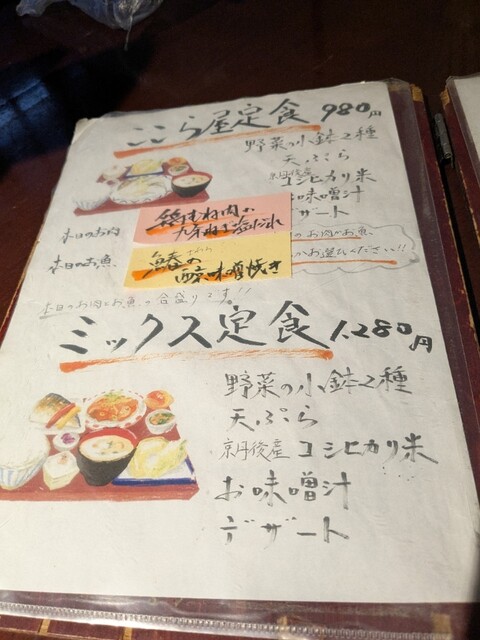 ここら屋定食 980円
野菜の小鉢2種
天ぷら
京丹後産 コシヒカリ米
お味噌汁
ザート
本日のお肉
鶏むね肉の
九条ねぎ塩だれ
のお肉かお魚、
本日のお魚
鰆の
西京味噌焼き
かお選びください!!
本日のお肉とお魚の合盛りです!!
ミックス定食 1,280円
野菜の小鉢2種
天ぷら
京丹後産 コシヒカリ米
お味噌汁
デザート